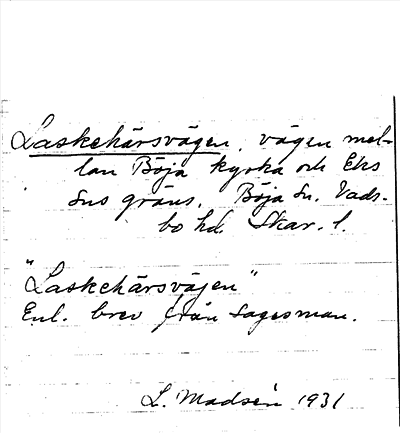 Laskehärsvägen, vägen mel-
lan Böja kyrka och Eks
sns gräns. Böja sn. Vads-
bo hd. Skar. l.
"Laskehärsvägen"
Enl. brev från sagesman.
L. Madsén 1931